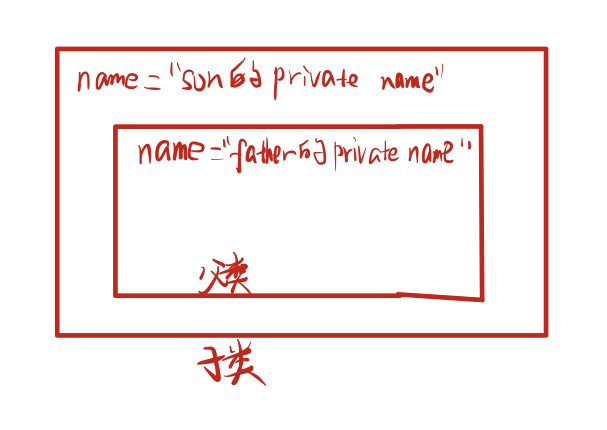 name="son的private name"
name="father的private name"
父类
子类